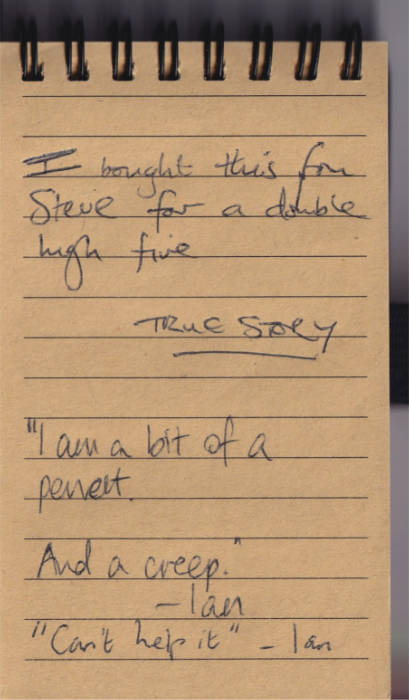 I bought this for
Steve for a double
high five
TRUE STORY
"I am a bit of a
pervert.
And a creep."
- Ian
"Can't help it" - Ian